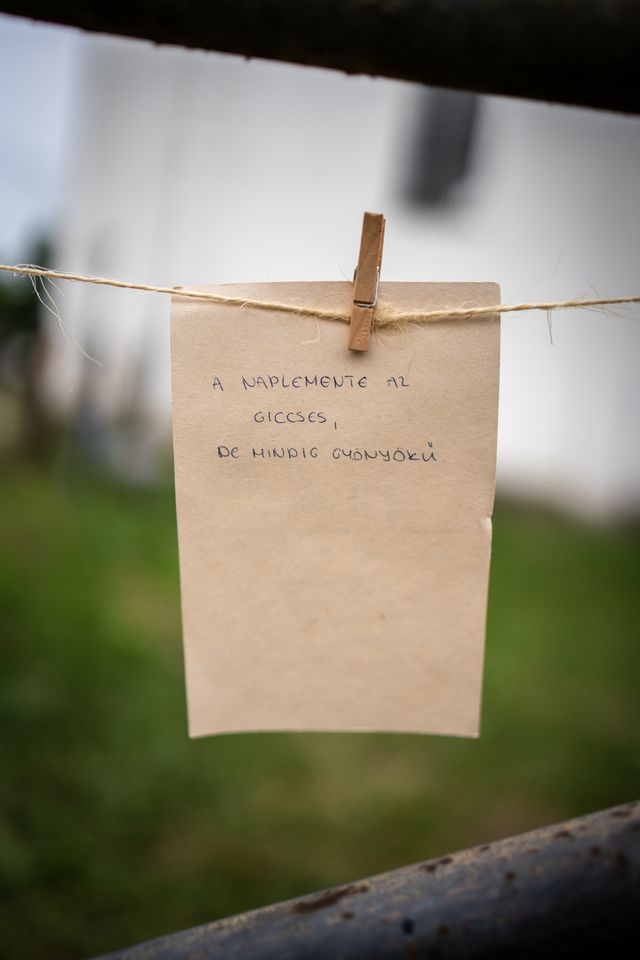 A NAPLEMENTE AZ
GICCSES,
DE MINDIG GYÖNYÖRŰ